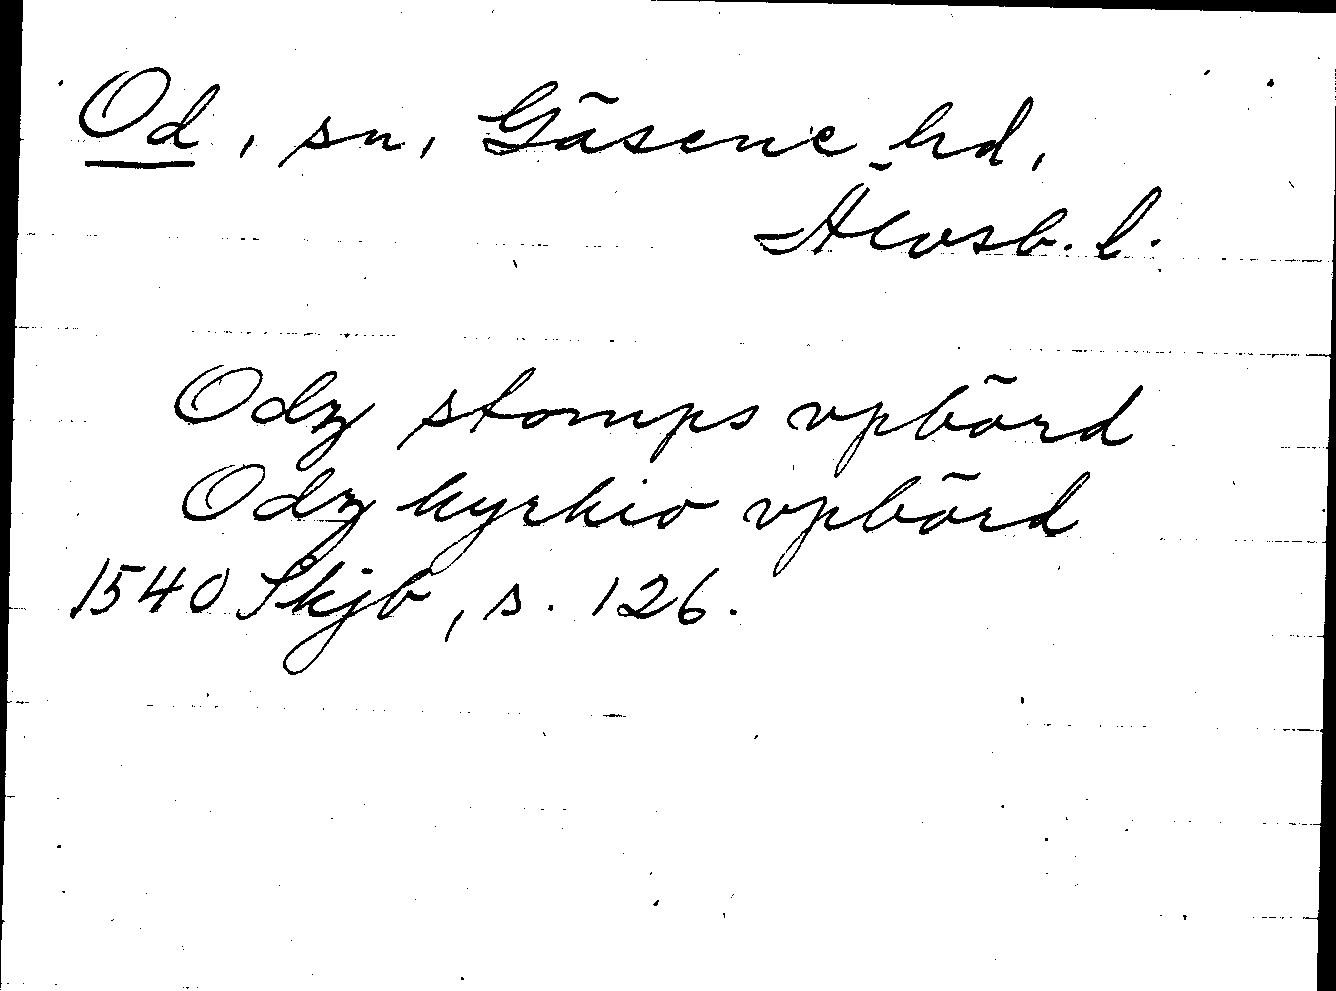 Od, sn, Gäsene hd,
Älvsb. l.
Odz stomps vpbörd
Odz kyrkio vpbörd
1540 Skjb, s. 126.